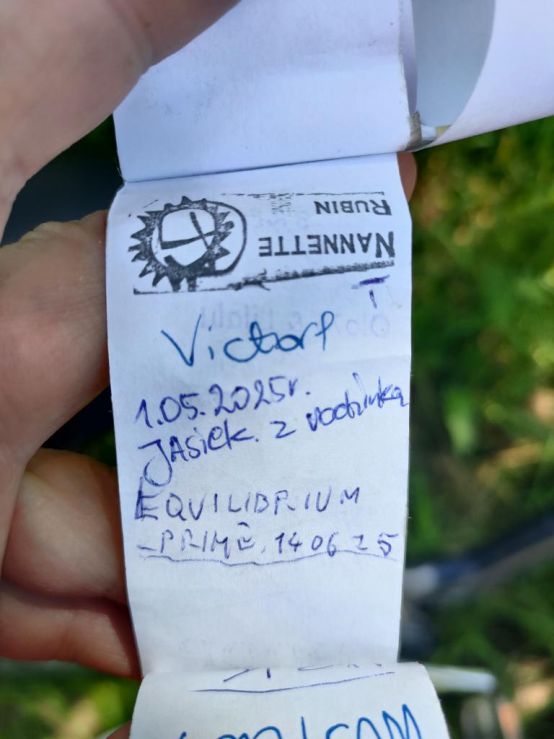 NANNETTE
RUBIN
T
1.05.2025r.
JASiek. z rodzinką
EQUILIBRIUM
-PRIME. 14 06 25